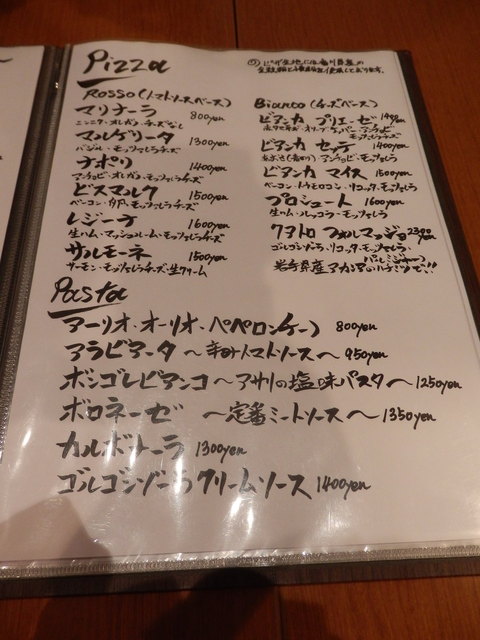 Pizza
Rosso(トマトソースベース)
マリナーラ 800yen
ニンニク・オレガノ・チーズなし
マルゲリータ 1300yen
バジル・モッツァレラチーズ
ナポリ 1400yen
アンチョビ・オレガノ・モッツァレラチーズ
ビスマルク 1500yen
ベーコン・卵・モッツァレラチーズ
レジーナ 1600yen
生ハム・マッシュルーム・モッツァレラチーズ
サルモーネ 1500yen
サーモン・モッツァレラチーズ・生クリーム
Bianco(チーズベース)
ビアンカ プリエーゼ
モッツァレラチーズ
ビアンカ セッテ 1400yen
アンチョビ・モッツァレラ
ビアンカ マイス 1500yen
ベーコン・トウモロコシ・リコッタ・モッツァレラ
プロシュート 1600yen
生ハム・ルッコラ・モッツァレラ
クアトロ フォルマッジョ 2300yen
ゴルゴンゾーラ・リコッタ・モッツァレラ・
パルミジャーノ
岩手県産アカシアのハチミツで!!
Pasta
アーリオ・オーリオ・ペペロンチーノ 800yen
アラビアータ 〜辛みトマトソース〜 950yen
ボンゴレビアンコ 〜アサリの塩味パスタ〜 1250yen
ボロネーゼ 〜定番ミートソース〜 1350yen
カルボナーラ 1300yen
ゴルゴンゾーラクリームソース 1400yen